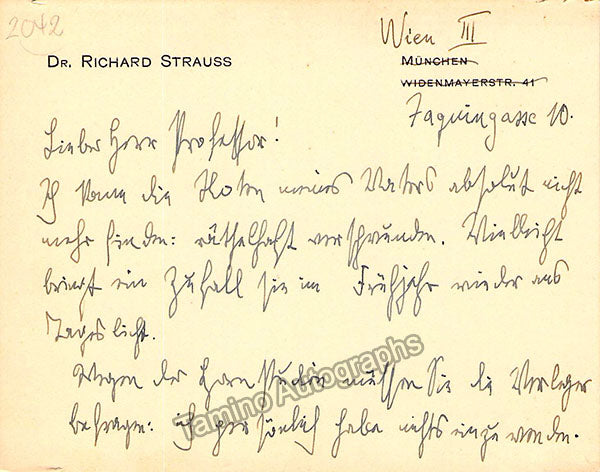 2042
Wien III
DR. RICHARD STRAUSS
MÜNCHEN
WIDENMAYERSTR. 41
Jaquingasse 10.
Lieber Herr Professor!
Ich kann die Noten meines Vaters absolut nicht
mehr finden: räthselhaft verschwunden. Vielleicht
bringt ein Zufall sie im Frühjahr wieder ans
Tageslicht.
Wegen der Hornstudien müssen Sie die Verleger
befragen: ich persönlich habe nichts einzuwenden.
Tamino Autographs